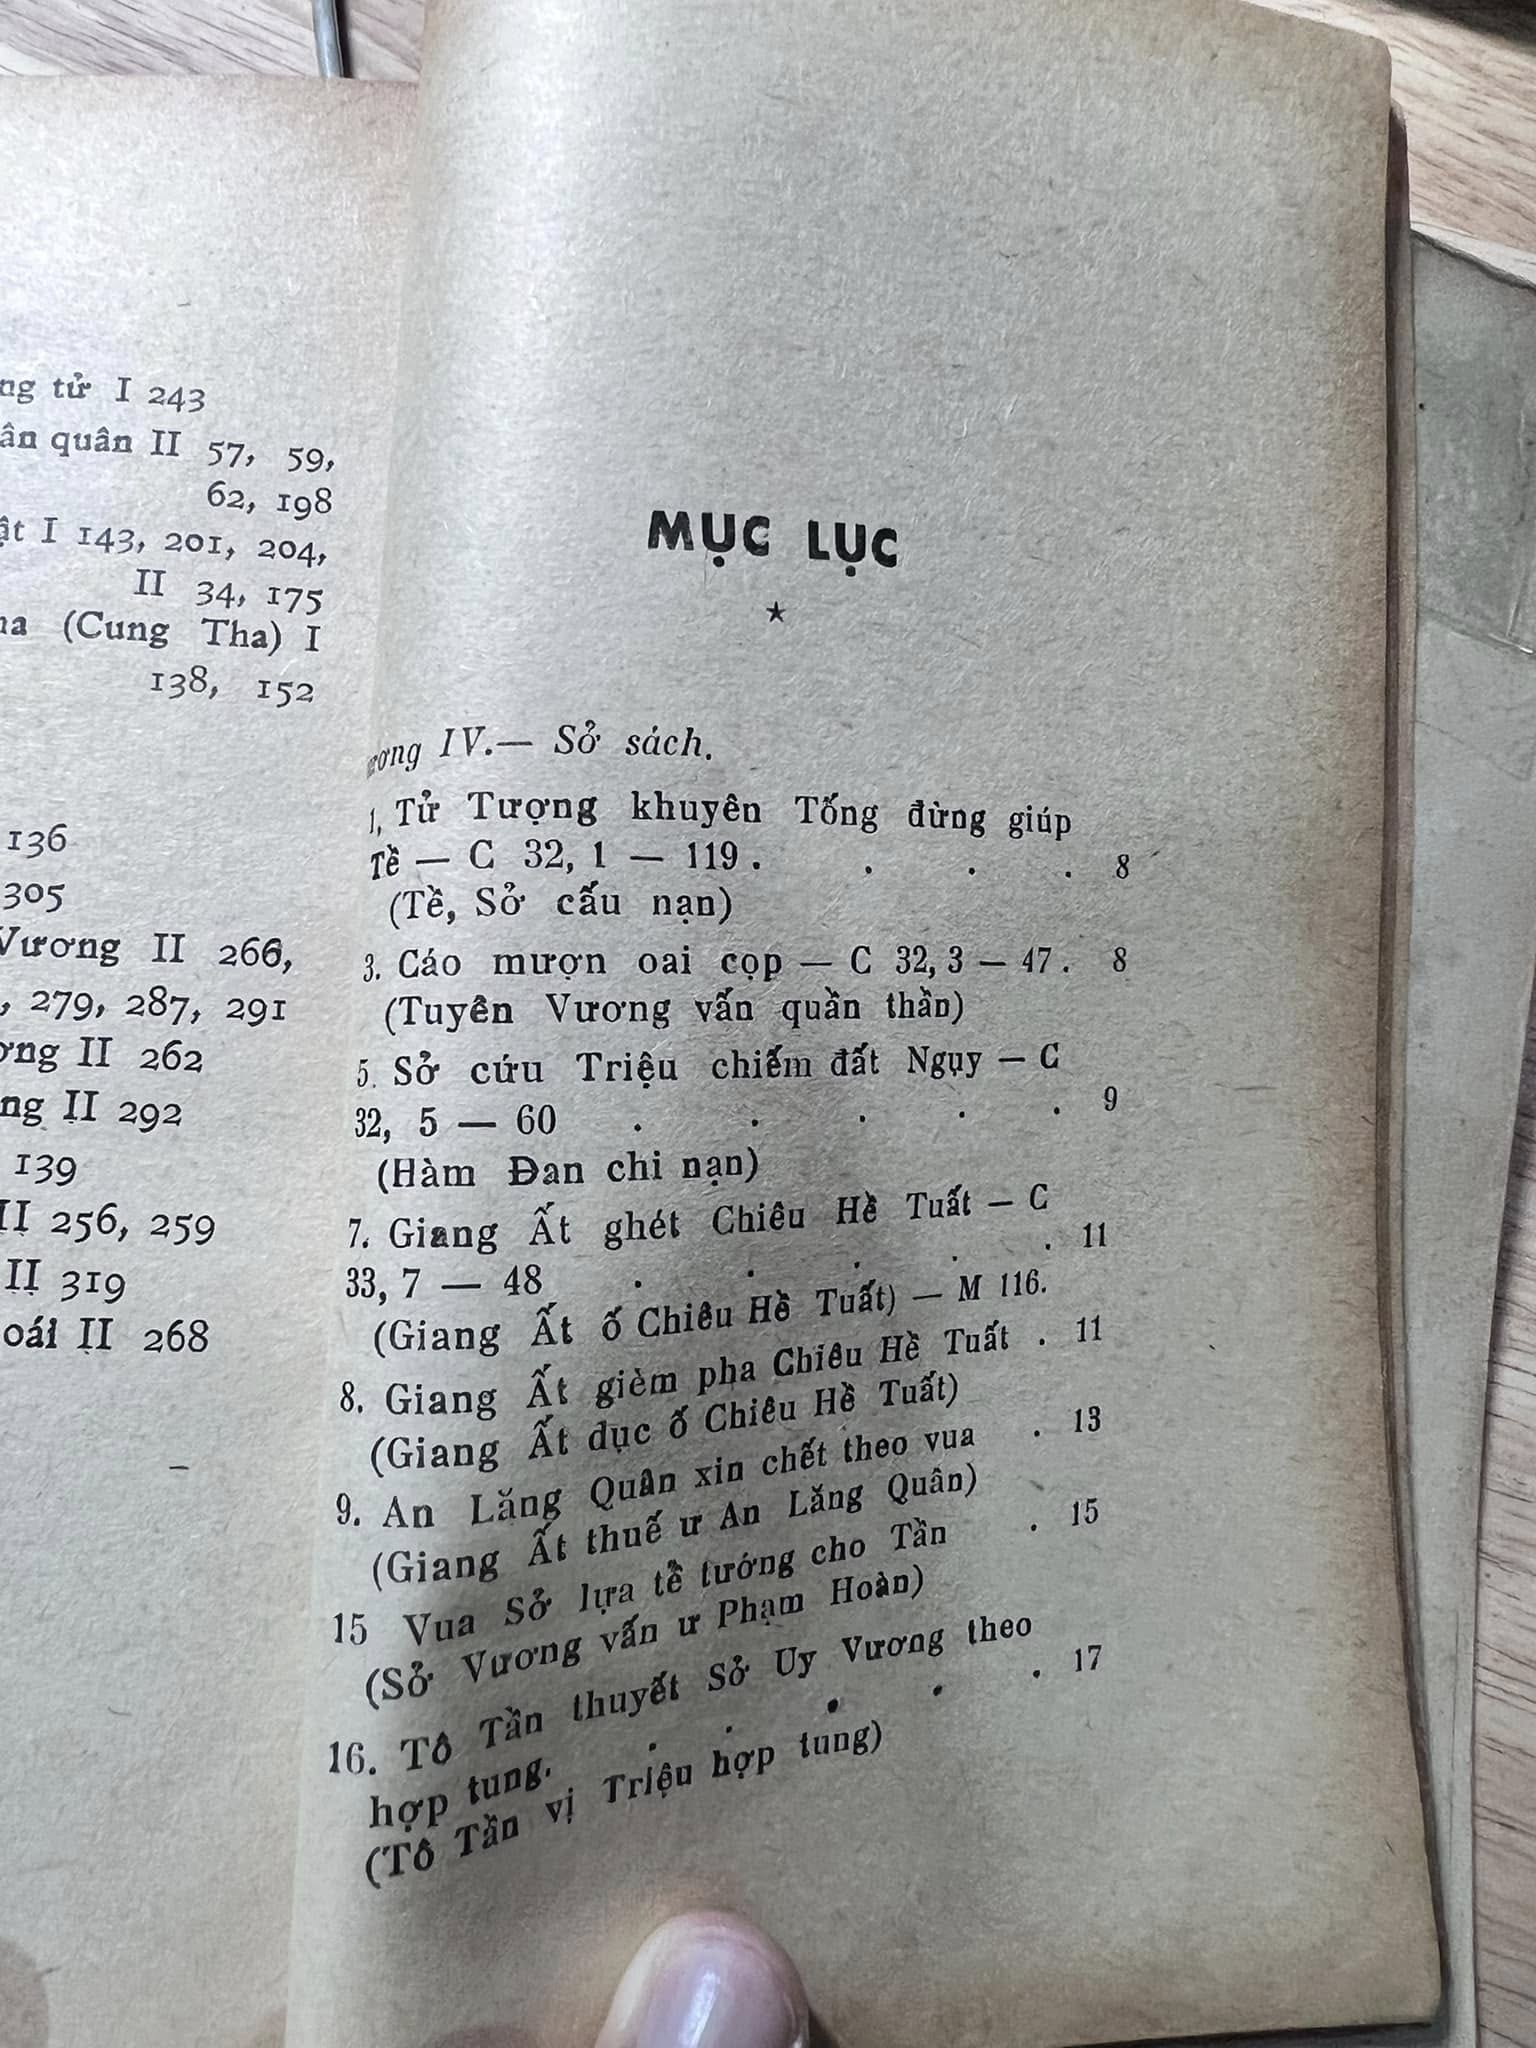 ng tử I 243
ân quân II 57, 59,
62, 198
ật I 143, 201, 204,
II 34, 175
(Cung Tha) I
138, 152
136
305
Vương II 266,
, 279, 287, 291
ơng II 262
ng II 292
139
II 256, 259
II 319
oái II 268
MỤC LỤC
★
ương IV.— Sở sách.
1. Tử Tượng khuyên Tống đừng giúp
Tề — C 32, 1 — 119 . . . . 8
(Tề, Sở cấu nạn)
3. Cáo mượn oai cọp — C 32, 3 — 47 . 8
(Tuyên Vương vấn quần thần)
5. Sở cứu Triệu chiếm đất Ngụy — C
32, 5 — 60 . . . . . 9
(Hàm Đan chi nạn)
7. Giang Ất ghét Chiêu Hề Tuất — C
33, 7 — 48 . . . . . 11
(Giang Ất ố Chiêu Hề Tuất) — M 116.
8. Giang Ất gièm pha Chiêu Hề Tuất . 11
(Giang Ất dục ố Chiêu Hề Tuất)
9. An Lăng Quân xin chết theo vua . 13
(Giang Ất thuế ư An Lăng Quân)
15 Vua Sở lựa tể tướng cho Tần . 15
(Sở Vương vấn ư Phạm Hoàn)
16. Tô Tần thuyết Sở Uy Vương theo
hợp tung. . . . . . 17
(Tô Tần vị Triệu hợp tung)